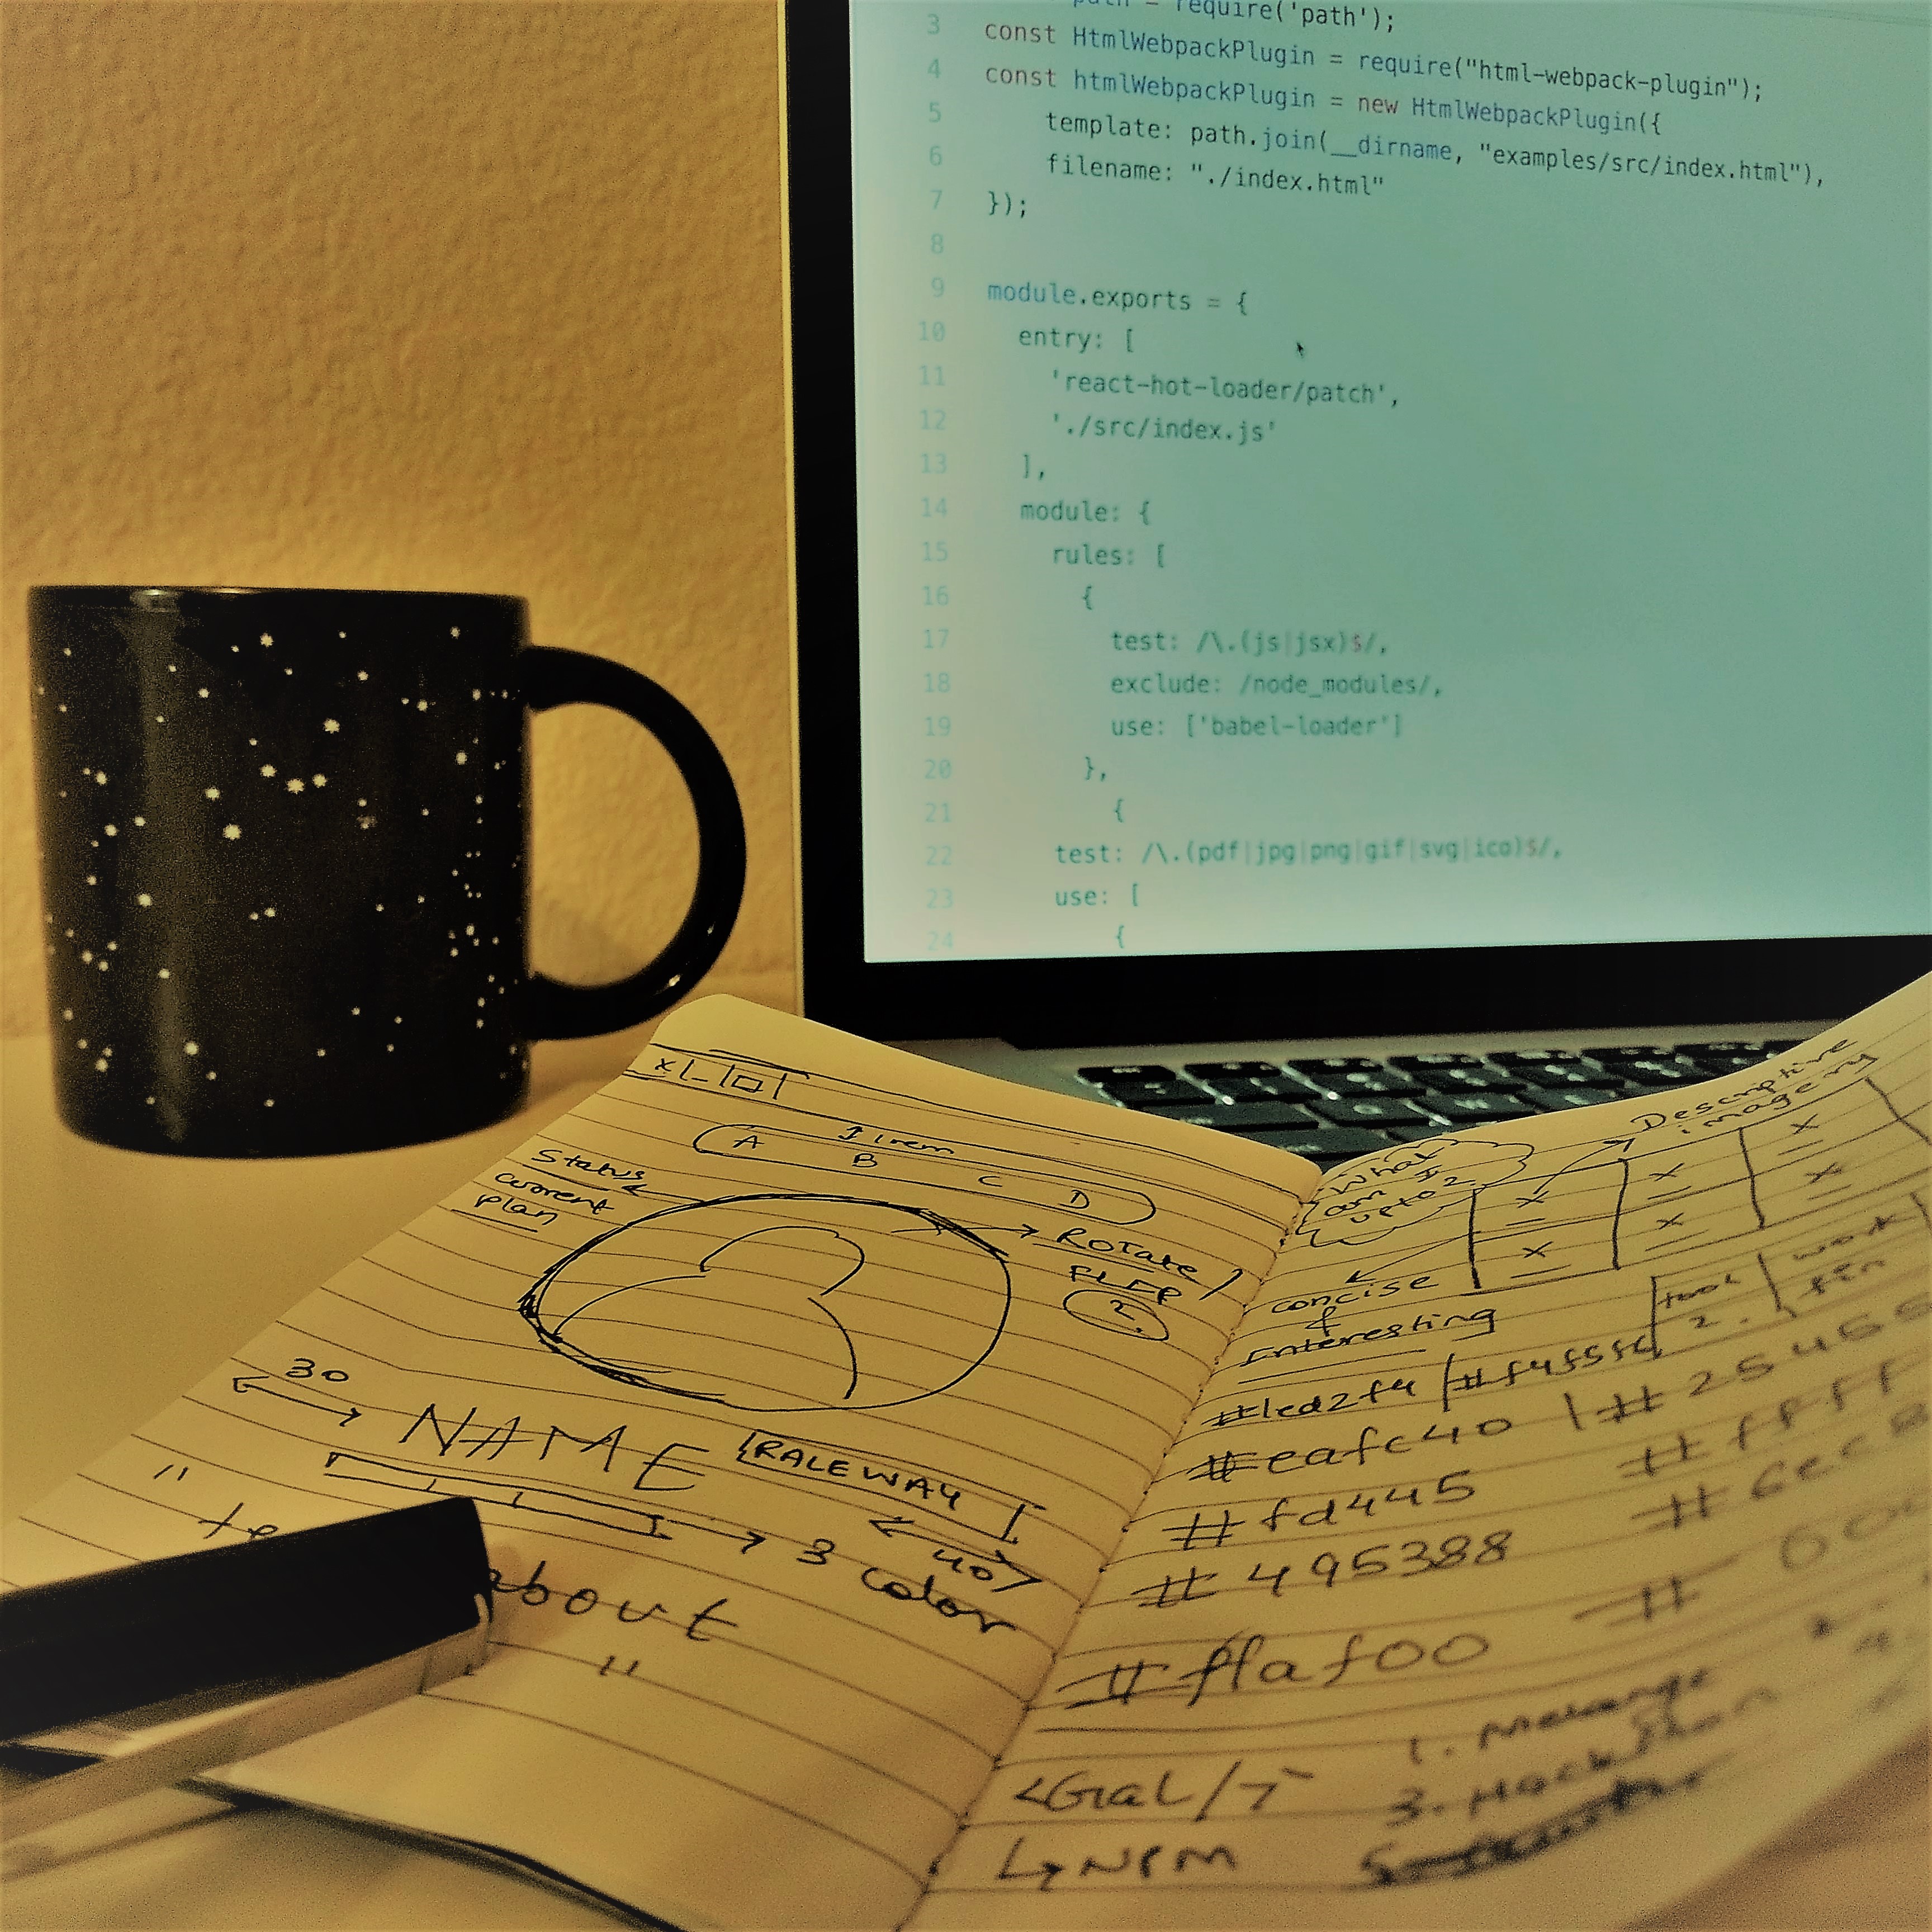 = require('path');
3 const HtmlWebpackPlugin = require("html-webpack-plugin");
4 const htmlWebpackPlugin = new HtmlWebpackPlugin({
5 template: path.join(__dirname, "examples/src/index.html"),
6 filename: "./index.html"
7 });
8
9 module.exports = {
10 entry: [
11 'react-hot-loader/patch',
12 './src/index.js'
13 ],
14 module: {
15 rules: [
16 {
17 test: /\.(js|jsx)$/,
18 exclude: /node_modules/,
19 use: ['babel-loader']
20 },
21 {
22 test: /\.(pdf|jpg|png|gif|svg|ico)$/,
23 use: [
24 {
A B C D
Status
current
plan
ROTATE /
FLIP
?
30
NAME
RALEWAY
40
3
color
about
What
am I
upto?
Descriptive
imagery
concise
&
Interesting
#1cd2f4
#eafc40
#fd4445
#495388
#f1af00
<Gral/>
↳ NPM